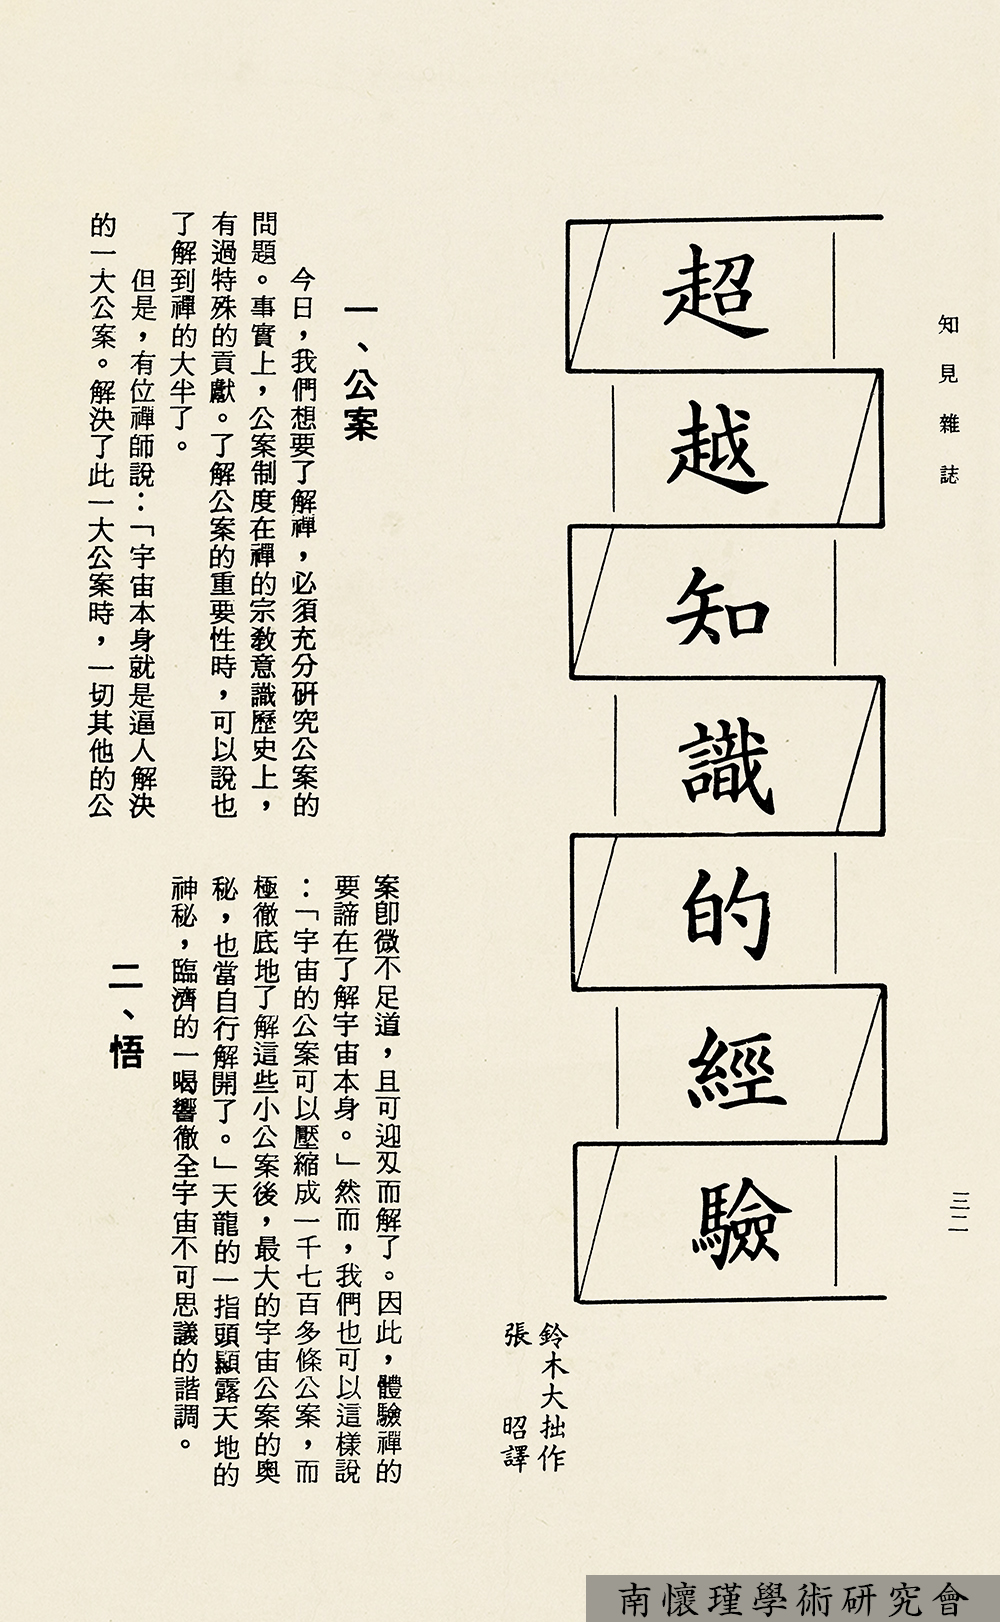 知見雜誌
三二
超越知識的經驗
鈴木大拙作
張　昭譯
一、公案
今日，我們想要了解禪，必須充分研究公案的
問題。事實上，公案制度在禪的宗教意識歷史上，
有過特殊的貢獻。了解公案的重要性時，可以說也
了解到禪的大半了。
但是，有位禪師說：「宇宙本身就是逼人解決
的一大公案。解決了此一大公案時，一切其他的公
案卽微不足道，且可迎刄而解了。因此，體驗禪的
要諦在了解宇宙本身。」然而，我們也可以這樣說
：「宇宙的公案可以壓縮成一千七百多條公案，而
極徹底地了解這些小公案後，最大的宇宙公案的奧
秘，也當自行解開了。」天龍的一指頭顯露天地的
神秘，臨濟的一喝響徹全宇宙不可思議的諧調。
二、悟
南懷瑾學術研究會